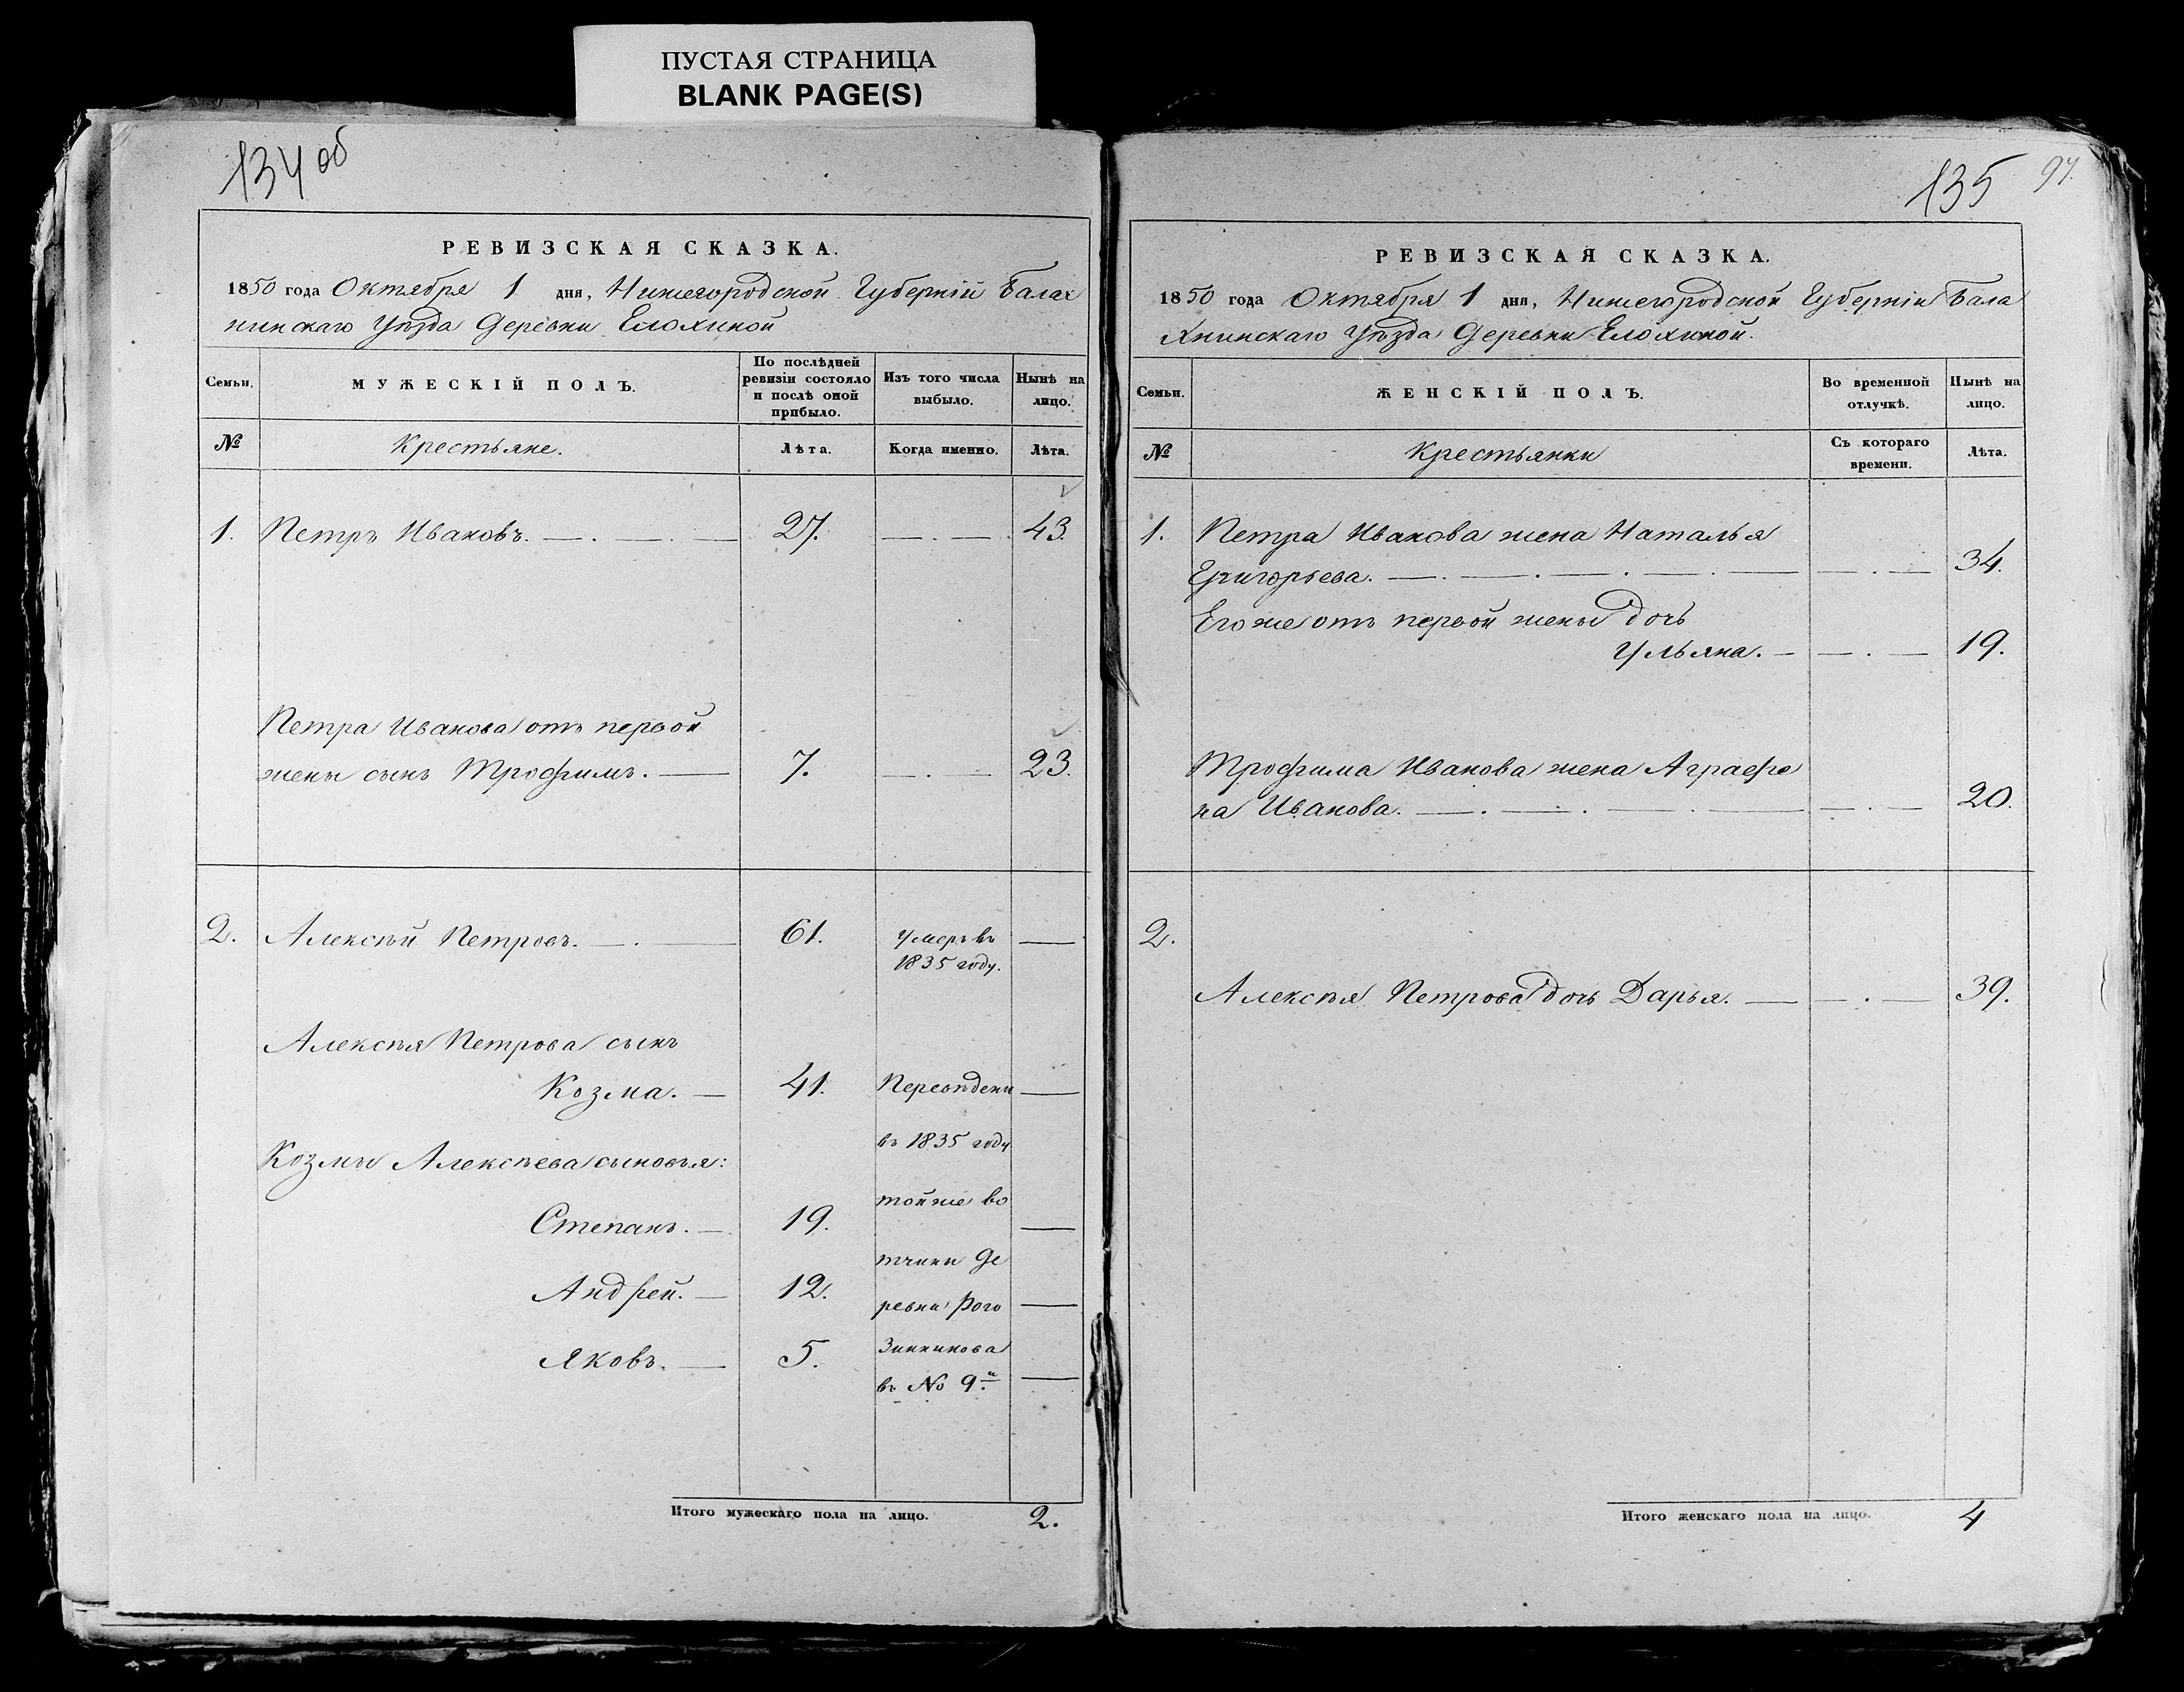 ПУСТАЯ СТРАНИЦА
BLANK PAGE(S)
134 об
РЕВИЗСКАЯ СКАЗКА.
1850 года Октября 1 дня, Нижегородской Губерніи Балах
нинскаго Уѣзда Деревни Елохиной
Семьи. МУЖЕСКІЙ ПОЛЪ. По послѣдней ревизіи состояло и послѣ оной прибыло. Изъ того числа выбыло. Нынѣ на лицо.
№ Крестьяне. Лѣта. Когда именно. Лѣта.
1. Петръ Ивановъ. 27. 43.
Петра Иванова отъ первой
жены сынъ Трофимъ. 7. 23.
2. Алексѣй Петровъ. 61. Умеръ въ
1835 году.
Алексѣя Петрова сынъ
Козма. 41. Переведены
въ 1835 году
Козмы Алексѣева сыновья:
той же во
Степанъ. 19.
тчины де
Андрей. 12.
ревни Рого
Яковъ. 5. Зинникова
въ № 9й
Итого мужескаго пола на лицо. 2.
135 97.
РЕВИЗСКАЯ СКАЗКА.
1850 года Октября 1 дня, Нижегородской Губерніи Бала
хнинскаго Уѣзда Деревни Елохиной.
Семьи. ЖЕНСКІЙ ПОЛЪ. Во временной отлучкѣ. Нынѣ на лицо.
№ Крестьянки Съ котораго времени. Лѣта.
1. Петра Иванова жена Наталья
Григорьева. 34.
Его же отъ первой жены дочь
Ульяна. 19.
Трофима Иванова жена Аграфе
на Иванова. 20.
2.
Алексѣя Петрова дочь Дарья. 39.
Итого женскаго пола на лицо. 4